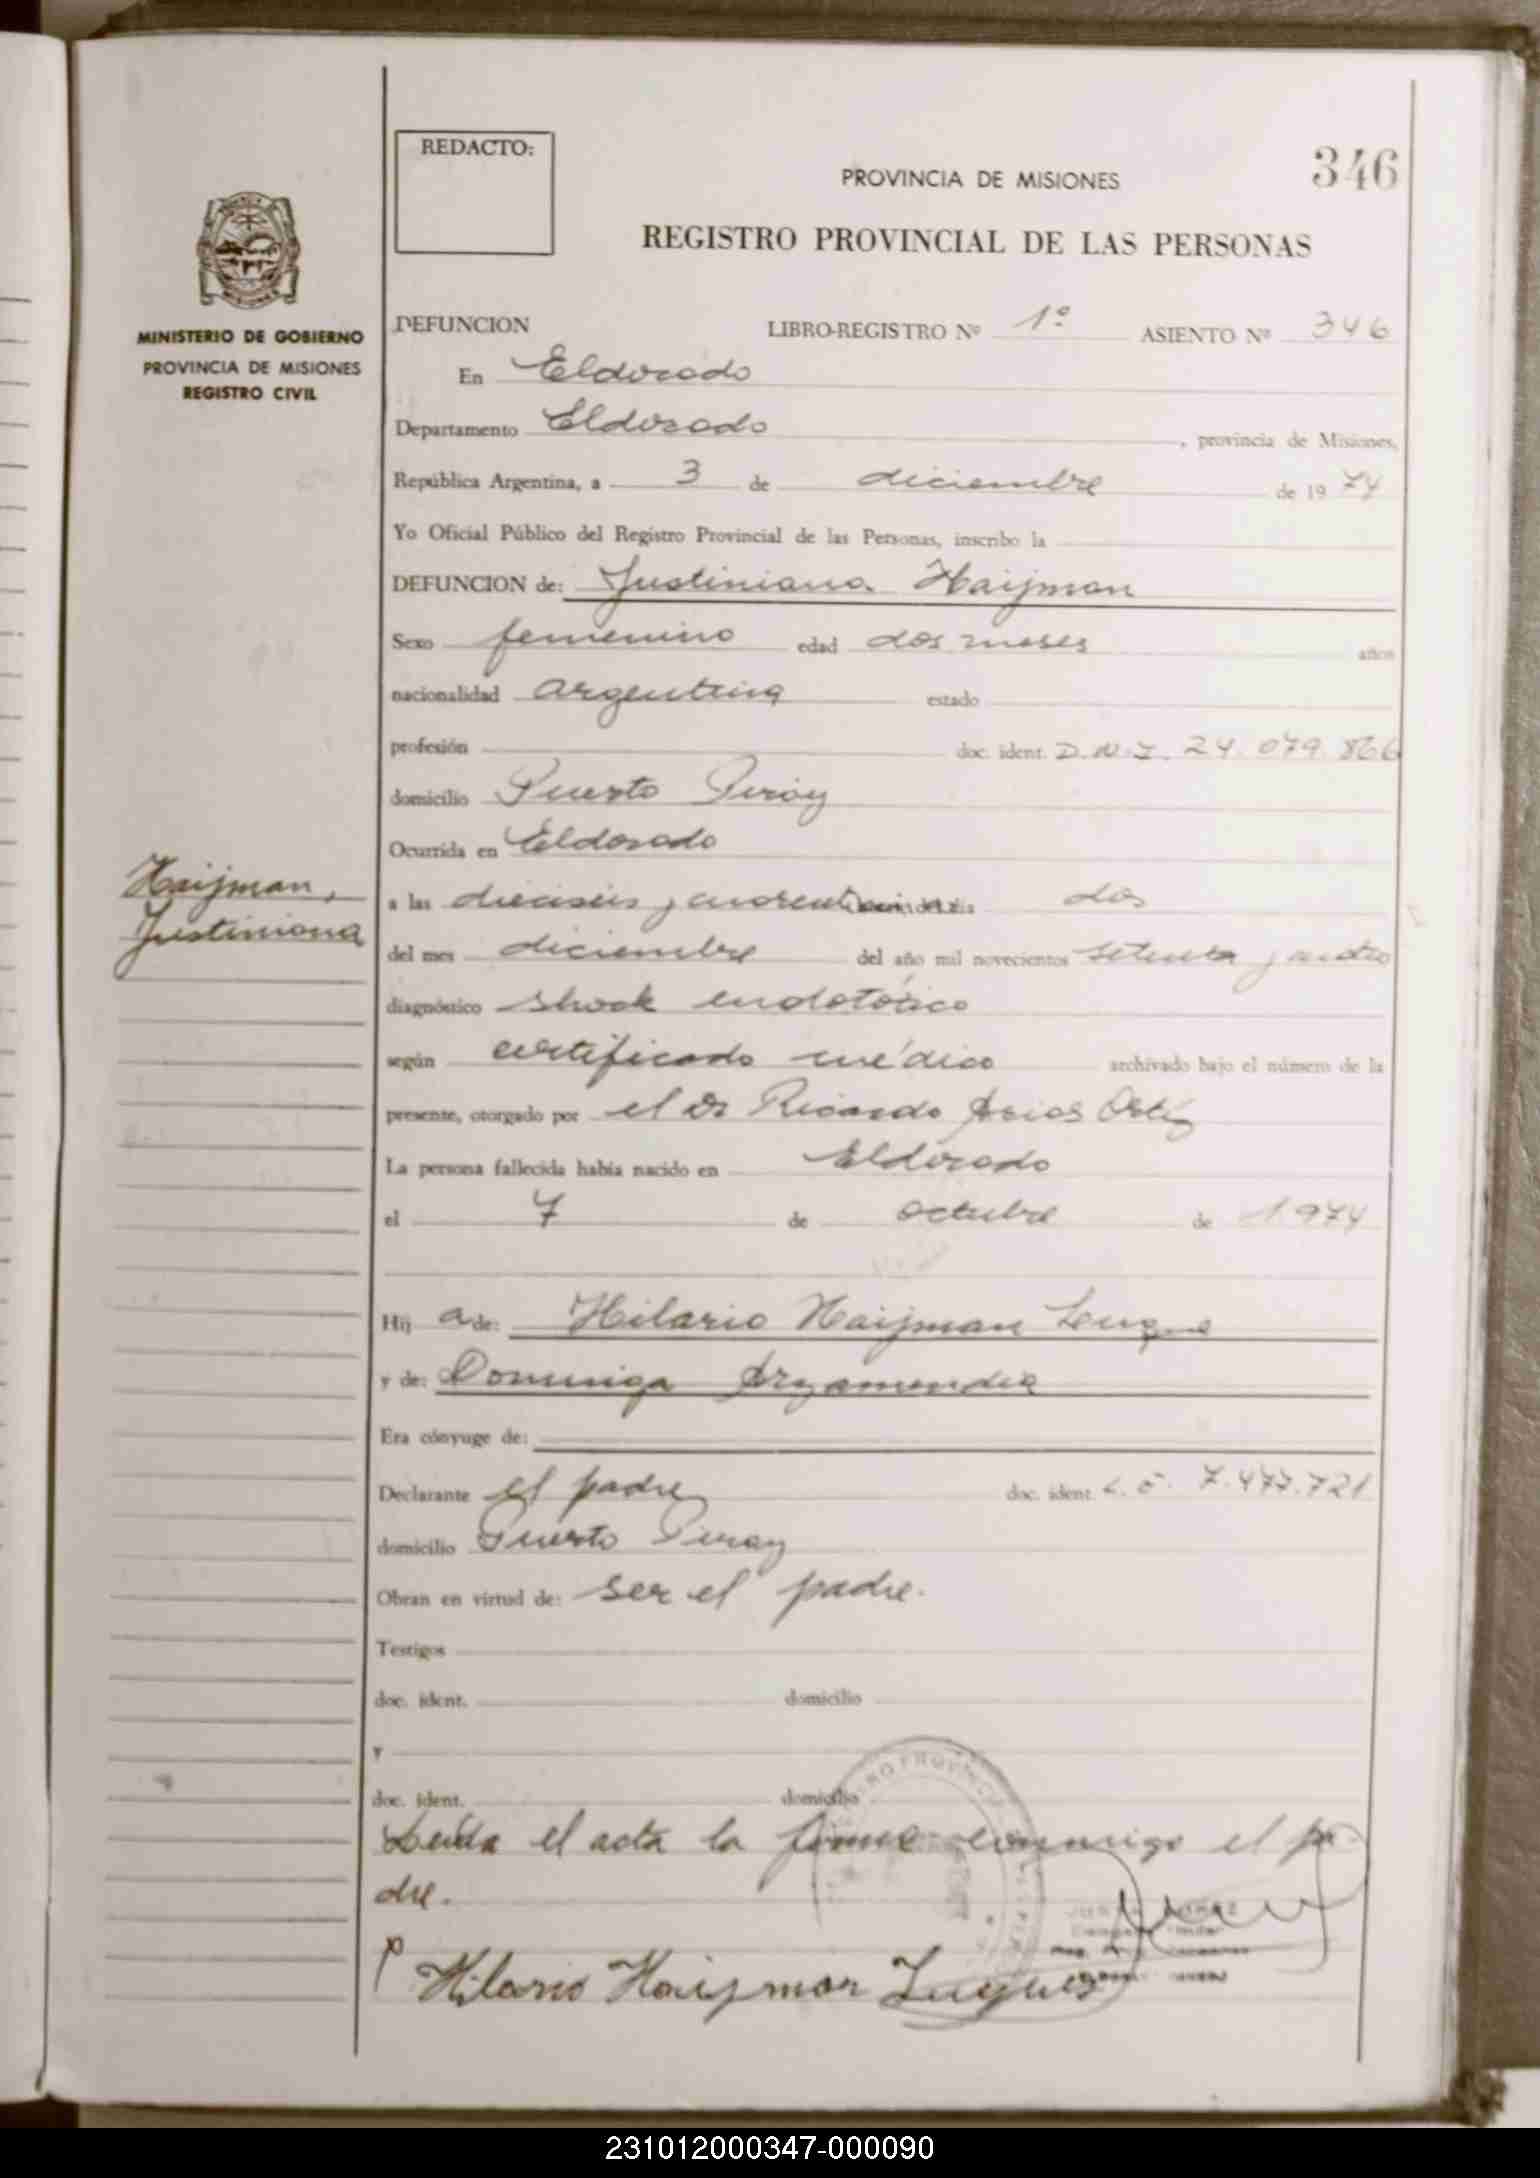 REDACTO:
346
PROVINCIA DE MISIONES
REGISTRO PROVINCIAL DE LAS PERSONAS
MINISTERIO DE GOBIERNO
PROVINCIA DE MISIONES
REGISTRO CIVIL
DEFUNCION LIBRO-REGISTRO Nº 1º ASIENTO Nº 346
En Eldorado
Departamento Eldorado, provincia de Misiones,
República Argentina, a 3 de diciembre de 1974
Yo Oficial Público del Registro Provincial de las Personas, inscribo la
DEFUNCION de: Justiniana Haijman
Sexo femenino edad dos meses años
nacionalidad argentina estado
profesión doc. ident. D.N.I. 24.079.866
domicilio Puerto Piray
Ocurrida en Eldorado
Haijman,
Justiniana
a las dieciseis y cuarenta dos
del mes diciembre del año mil novecientos setenta y cuatro
diagnóstico shock endotóxico
según certificado médico archivado bajo el número de la
presente, otorgado por el Dr Ricardo Arios Ortiz
La persona fallecida había nacido en Eldorado
el 7 de octubre de 1974
Hij a de: Hilario Haijman Luque
y de: Dominga Arzamendia
Era cónyuge de:
Declarante el padre doc. ident. 7.477.721
domicilio Puerto Piray
Obran en virtud de: ser el padre.
Testigos
doc. ident. domicilio
y
doc. ident. domicilio
Leida el acta la firma conmigo el pa-
dre.
Hilario Haijman Luques
231012000347-000090